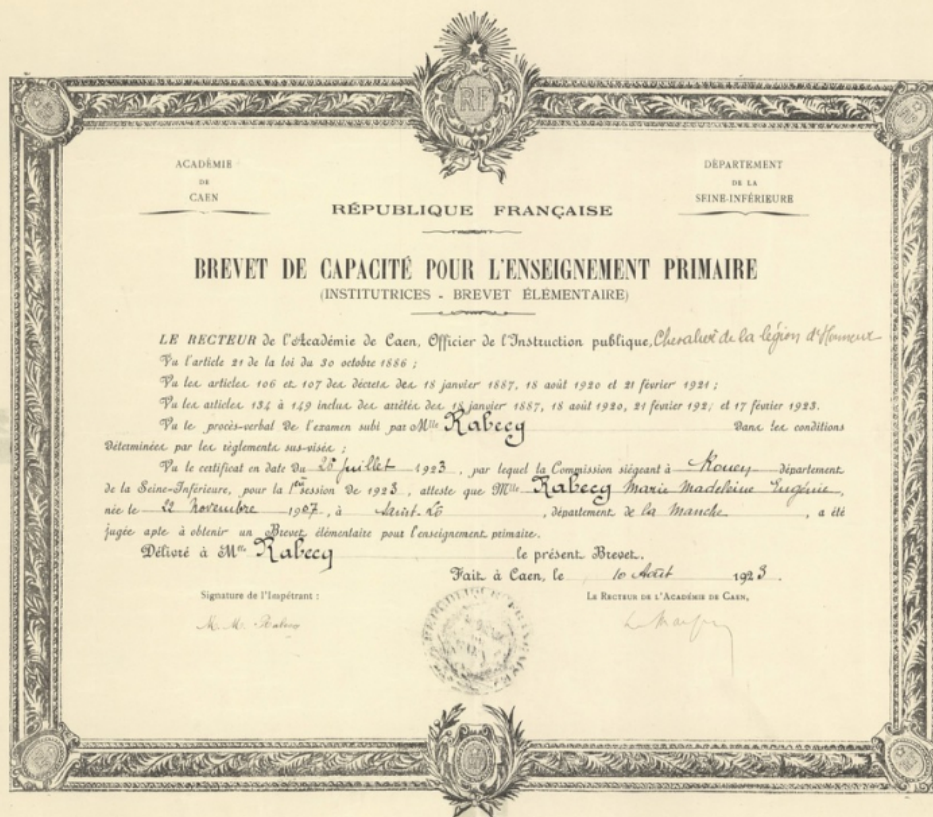 RF
ACADÉMIE
DE
CAEN
DÉPARTEMENT
DE LA
SEINE-INFÉRIEURE
RÉPUBLIQUE FRANÇAISE
BREVET DE CAPACITÉ POUR L'ENSEIGNEMENT PRIMAIRE
(INSTITUTRICES - BREVET ÉLÉMENTAIRE)
LE RECTEUR de l'Académie de Caen, Officier de l'Instruction publique, Chevalier de la légion d'Honneur
Vu l'article 21 de la loi du 30 octobre 1886 ;
Vu les articles 106 et 107 des décrets des 18 janvier 1887, 18 août 1920 et 21 février 1921 ;
Vu les articles 134 à 149 inclus des arrêtés des 18 janvier 1887, 18 août 1920, 21 février 192; et 17 février 1923.
Vu le procès-verbal de l'examen subi par Mlle Rabecq dans les conditions
déterminées par les règlements sus-visés ;
Vu le certificat en date du juillet 1923, par lequel la Commission siégeant à Rouen département
de la Seine-Inférieure, pour la 1ère session de 1923, atteste que Mlle Rabecq Marie Madeleine Eugénie,
née le 22 novembre 1907, à Saint-Lô, département de la Manche, a été
jugée apte à obtenir un Brevet élémentaire pour l'enseignement primaire.
Délivré à Mlle Rabecq le présent Brevet.
Fait à Caen, le 10 Août 1923.
Signature de l'Impétrant :
LE RECTEUR DE L'ACADÉMIE DE CAEN,
M. M. Rabecq